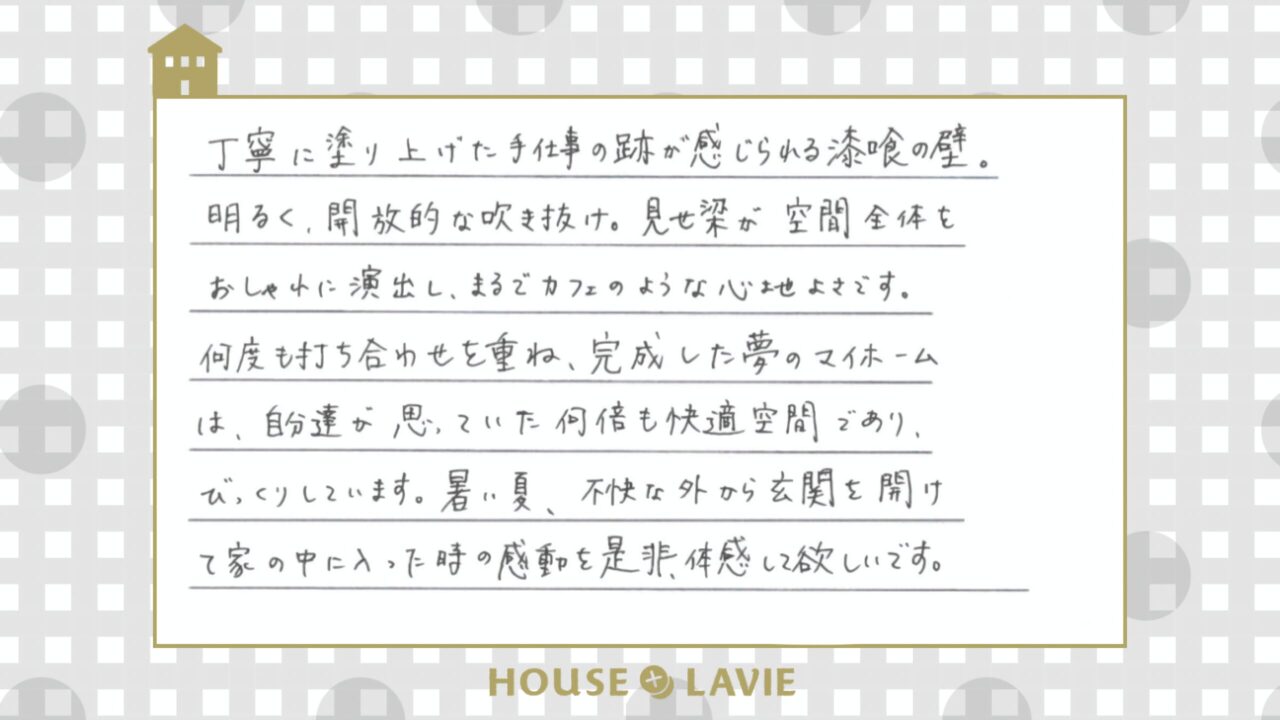 丁寧に塗り上げた手仕事の跡が感じられる漆喰の壁。
明るく、開放的な吹き抜け。見せ梁が空間全体を
おしゃれに演出し、まるでカフェのような心地よさです。
何度も打ち合わせを重ね、完成した夢のマイホーム
は、自分達が思っていた何倍も快適空間であり、
びっくりしています。暑い夏、不快な外から玄関を開け
て家の中に入った時の感動を是非、体感して欲しいです。
HOUSE + LAVIE